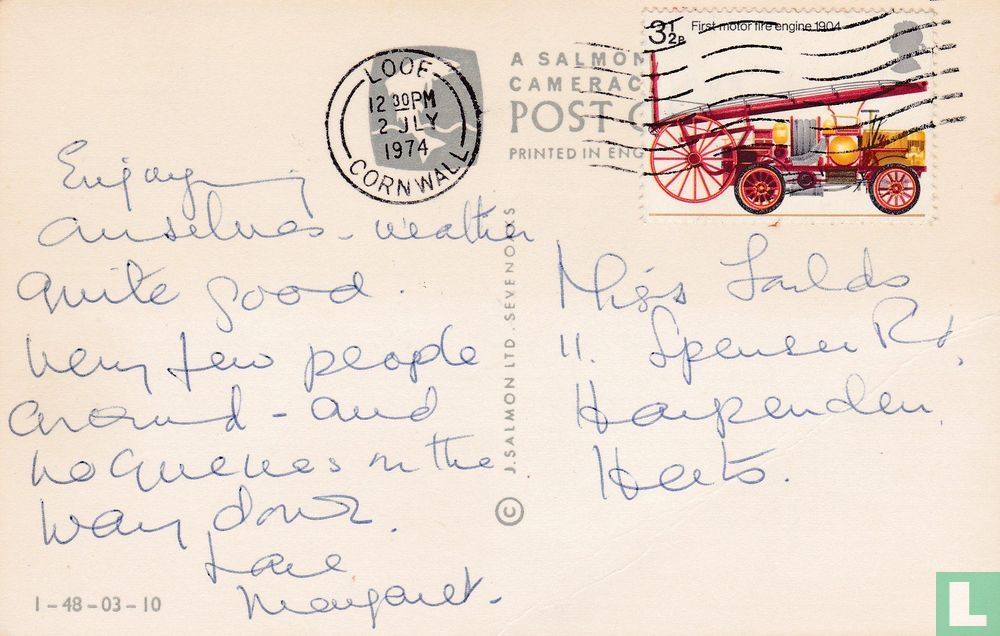 LOOE
12 30PM
2 JLY
1974
CORNWALL
A SALMON
CAMERAC
POST C
PRINTED IN ENG
3½P First motor fire engine 1904
Enjoying
ourselves - weather
quite good.
Very few people
around - and
no queues on the
way down.
Love
Margaret.
1-48-03-10
© J. SALMON LTD. SEVENOAKS
Miss
11. Spenser Rd,
Harpenden
Herts.
L